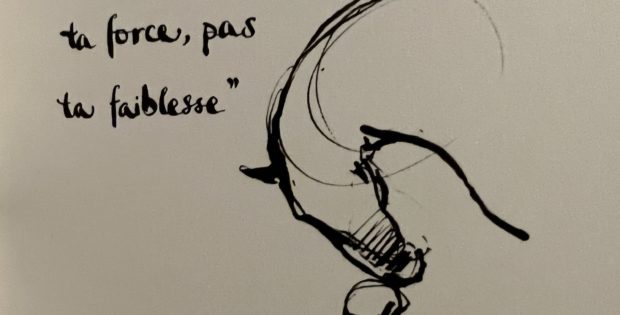 ta force, pas
ta faiblesse"